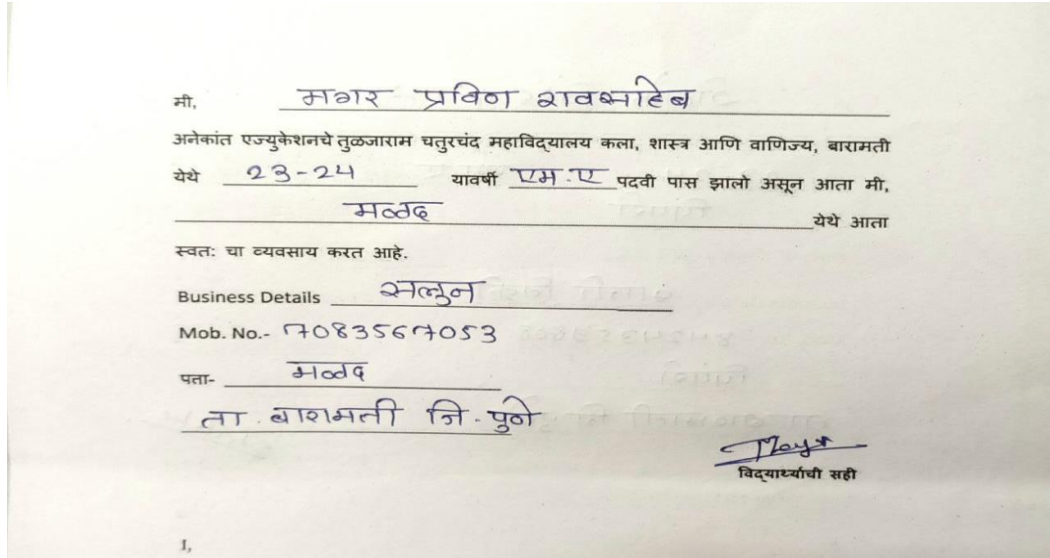 मी, मगर प्रविण रावसाहेब
अनेकांत एज्युकेशनचे तुळजाराम चतुरचंद महाविद्यालय कला, शास्त्र आणि वाणिज्य, बारामती
येथे 23-24 यावर्षी एम.ए पदवी पास झालो असून आता मी,
मळद येथे आता
स्वतः चा व्यवसाय करत आहे.
Business Details सलुन
Mob. No.- 7083567053
पता- मळद
ता. बारामती जि. पुणे
विद्यार्थ्याची सही
I,